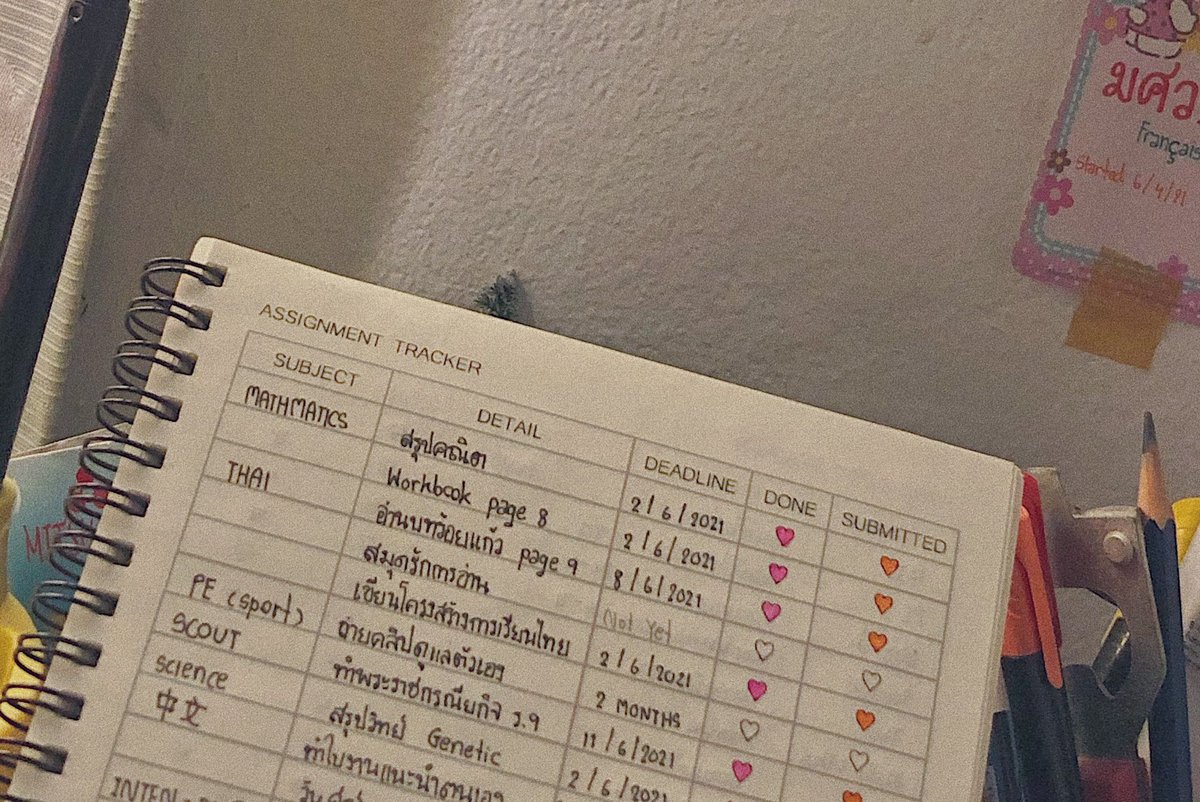 มศว
Français
Started 6/4/21
ASSIGNMENT TRACKER
SUBJECT DETAIL DEADLINE DONE SUBMITTED
MATHMATICS สรุปคณิตา 2/6/2021
Workbook page 8 2/6/2021
THAI อ่านบทร้อยแก้ว page 9 8/6/2021
สมุดรักการอ่าน Not Yet
เขียนโครงสร้างการเรียนไทย 2/6/2021
PE (sport) ถ่ายคลิปดูแลตัวเอง 2 MONTHS
SCOUT ทำพระราชกรณียกิจ ร.9 11/6/2021
science สรุปวิทย์ Genetic 2/6/2021
中文 ทำใบงานแนะนำตนเอง